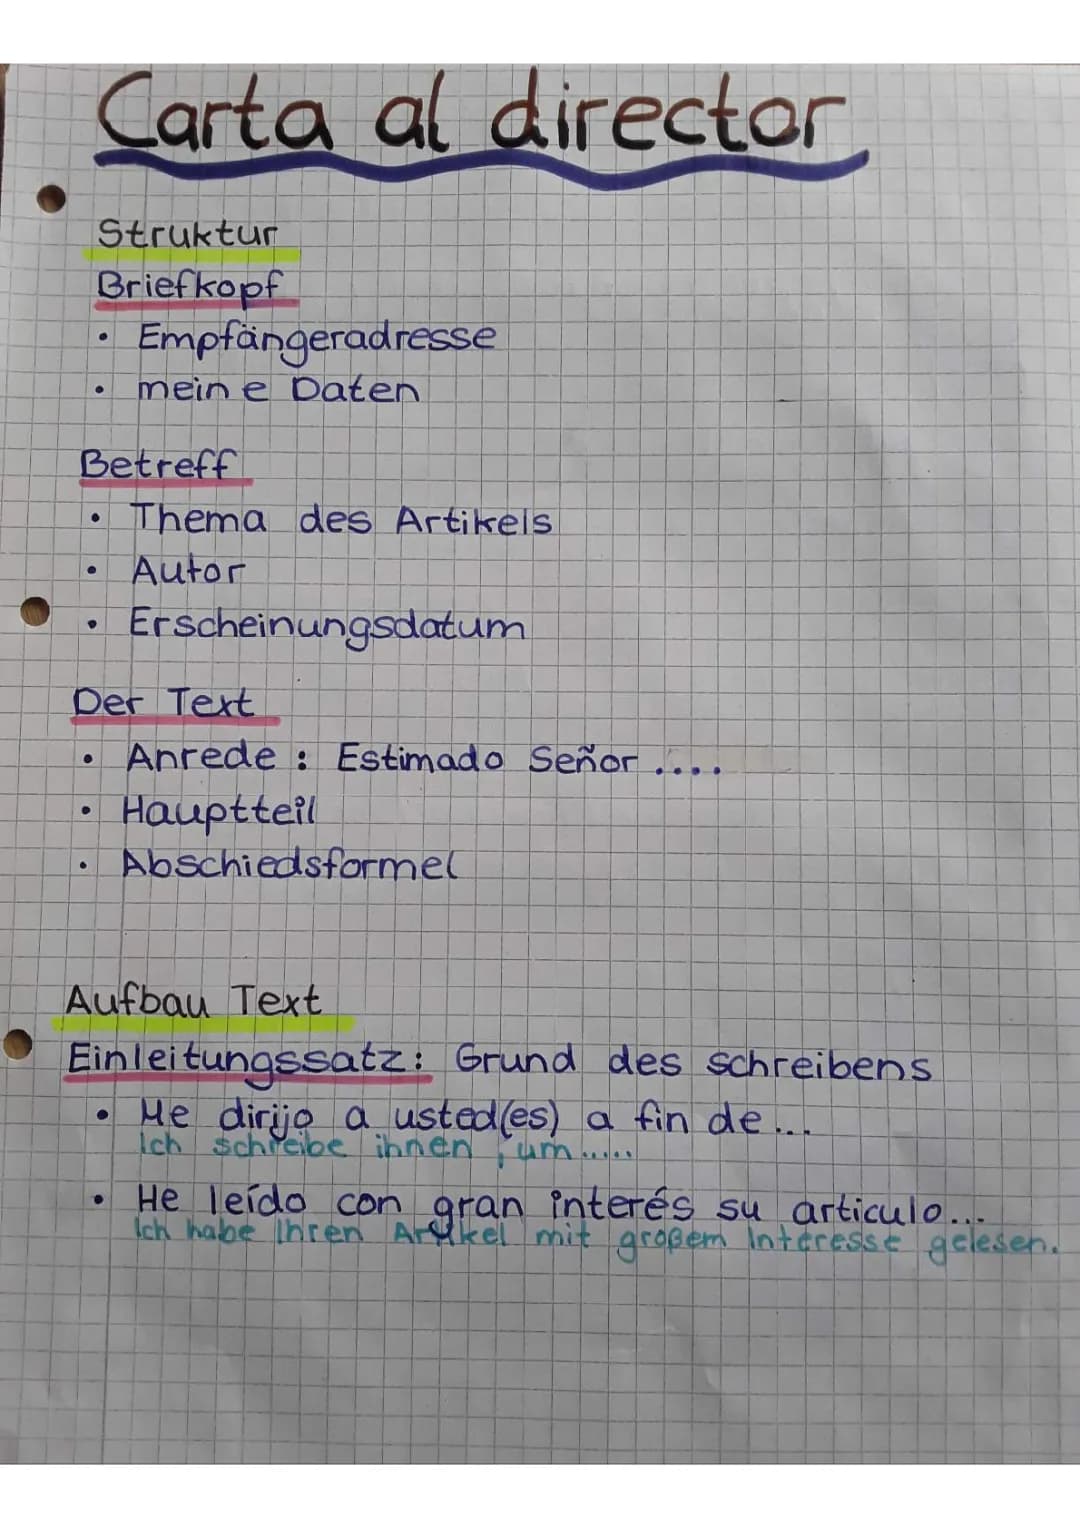 Carta al director
Struktur
Briefkopf
• Empfängeradresse
• meine Daten
Betreff
• Thema des Artikels
• Autor
• Erscheinungsdatum
Der Text
• Anrede : Estimado Señor ....
• Hauptteil
• Abschiedsformel
Aufbau Text
Einleitungssatz: Grund des schreibens
• Me dirijo a usted(es) a fin de...
Ich schreibe ihnen, um.....
• He leído con gran interés su articulo...
Ich habe Ihren Artikel mit großem Interesse gelesen.